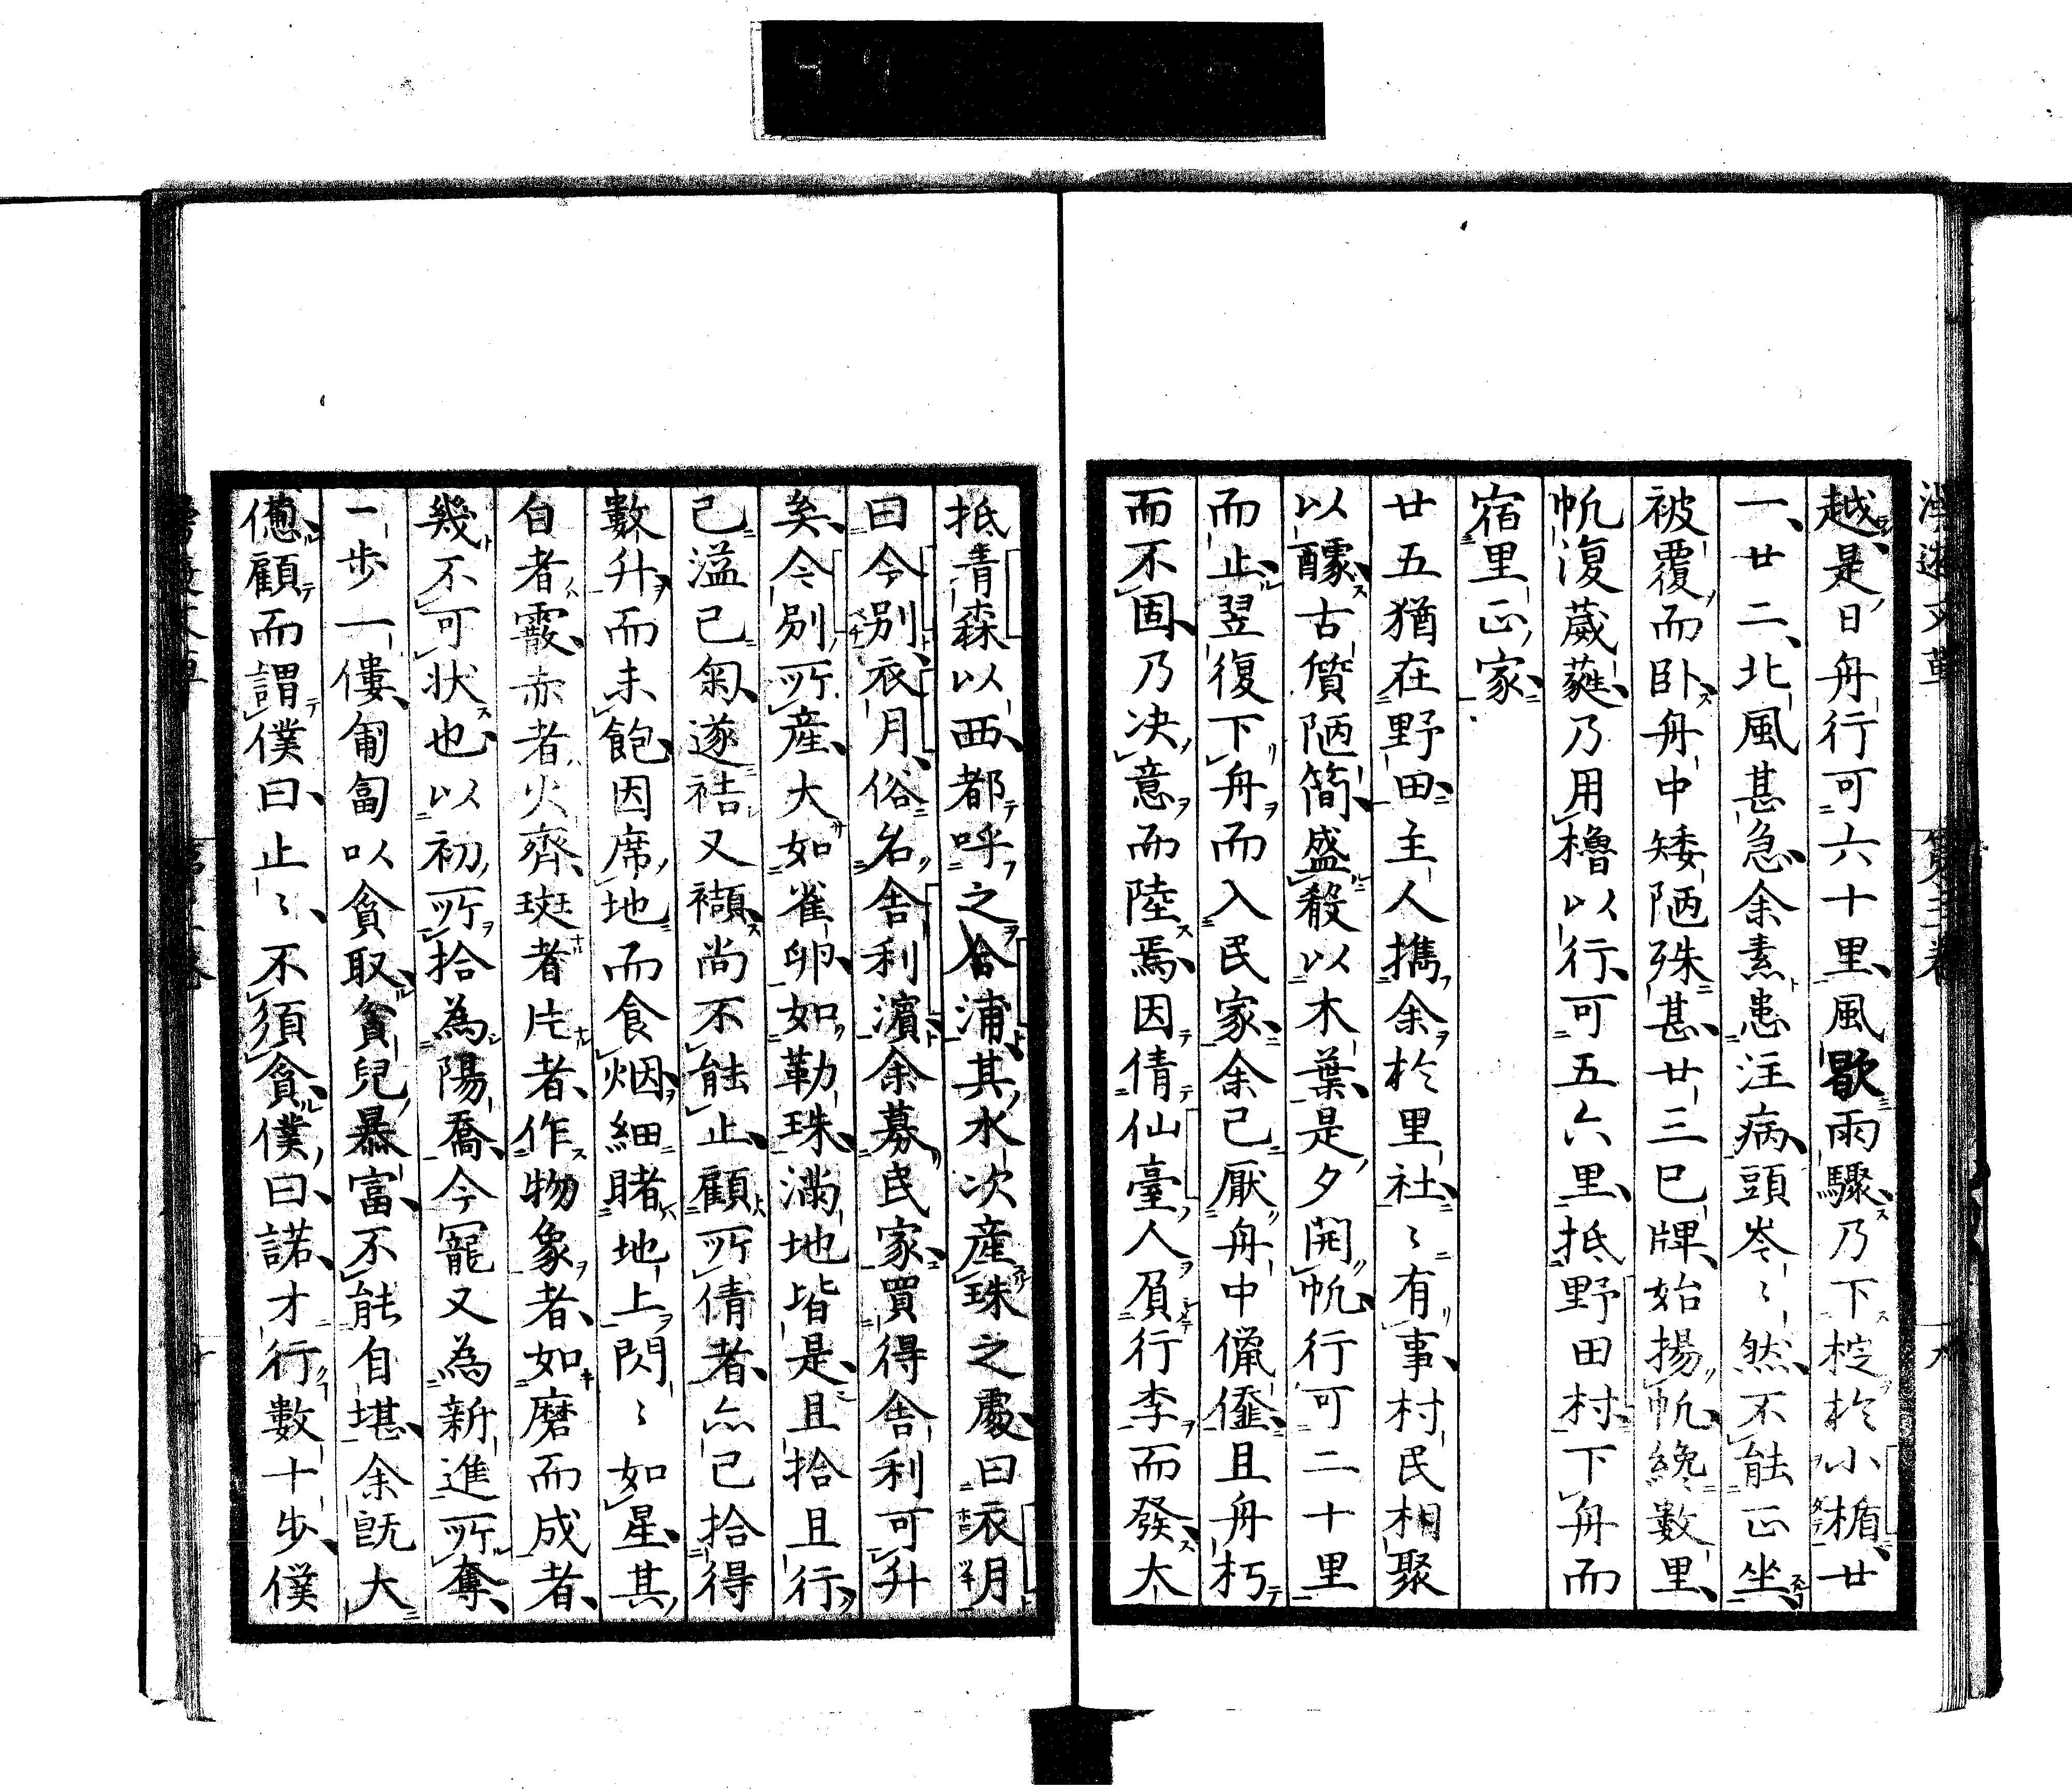 越是日舟行可六十里風歇雨驟乃下椗於小楯廿
一廿二北風甚急余素患注病頭岑〻然不能正坐
被覆而卧舟中矮陋殊甚廿三巳牌始揚帆纔數里
帆復葳蕤乃用櫓以行可五六里抵野田村下舟而
宿里正家
廿五猶在野田主人攜余於里社〻有事村民相聚
以醵古質陋簡盛殽以木葉是夕開帆行可二十里
而止翌復下舟而入民家余已厭舟中儠僷且舟朽
而不固乃决意而陸焉因倩仙臺人負行李而發大
抵青森以西都呼之合浦其水次産珠之處曰衣月
曰今別衣月俗名舎利濱余募民家買得舎利可升
矣今別所産大如雀卵如勒珠滿地皆是且拾且行
已溢已匊遂袺又襭尚不能止顧所倩者亦已拾得
數升而未飽因席地而食烟細睹地上閃〻如星其
白者霰赤者火齊斑者片者作物象者如磨而成者
幾不可状也以初所拾為陽喬今寵又為新進所奪
一歩一僂匍匐以貪取貧兒暴富不能自堪余既大
憊顧而謂僕曰止〻不須貪僕曰諾才行數十歩僕